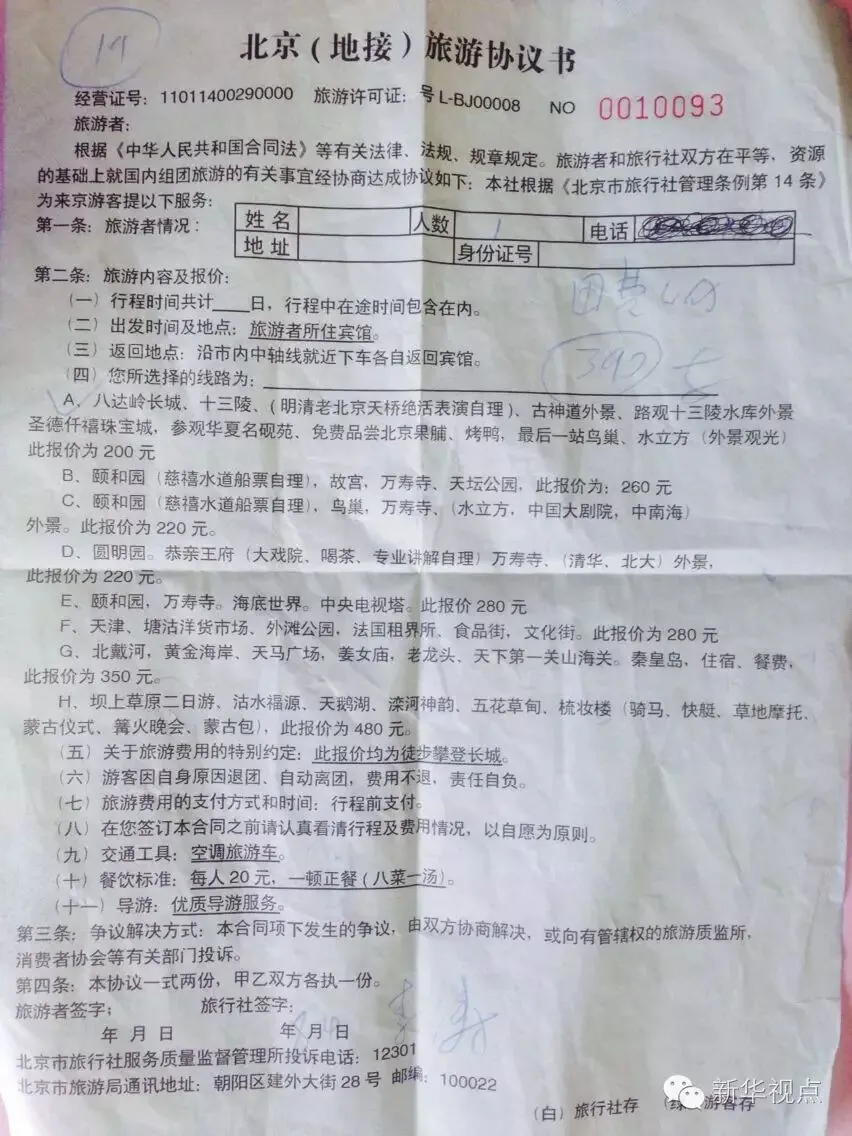 19
北京(地接)旅游协议书
经营证号：11011400290000 旅游许可证：号L-BJ00008 NO 0010093
旅游者：
根据《中华人民共和国合同法》等有关法律、法规、规章规定。旅游者和旅行社双方在平等，资源
的基础上就国内组团旅游的有关事宜经协商达成协议如下：本社根据《北京市旅行社管理条例第14条》
为来京游客提以下服务：
第一条：旅游者情况：
姓名 人数 1 电话
地址 身份证号
第二条：旅游内容及报价：
(一）行程时间共计____日，行程中在途时间包含在内。
(二）出发时间及地点：旅游者所住宾馆。
(三）返回地点：沿市内中轴线就近下车各自返回宾馆。
390
(四）您所选择的线路为：
A、八达岭长城、十三陵、(明清老北京天桥绝活表演自理）、古神道外景、路观十三陵水库外景
圣德仟禧珠宝城，参观华夏名砚苑、免费品尝北京果脯、烤鸭，最后一站鸟巢、水立方（外景观光）
此报价为200元
B、颐和园（慈禧水道船票自理)，故宫，万寿寺、天坛公园，此报价为：260元
C、颐和园（慈禧水道船票自理)，鸟巢，万寿寺、(水立方，中国大剧院，中南海)
外景。此报价为220元。
D、圆明园。恭亲王府（大戏院、喝茶、专业讲解自理）万寿寺、(清华、北大）外景，
此报价为220元。
E、颐和园，万寿寺。海底世界。中央电视塔。此报价280元
F、天津、塘沽洋货市场、外滩公园，法国租界所、食品街，文化街。此报价为280元
G、北戴河，黄金海岸、天马广场，姜女庙，老龙头、天下第一关山海关。秦皇岛，住宿、餐费，
此报价为350元。
H、坝上草原二日游、沽水福源、天鹅湖、滦河神韵、五花草甸、梳妆楼（骑马、快艇、草地摩托、
蒙古仪式、篝火晚会、蒙古包)，此报价为480元。
(五）关于旅游费用的特别约定：此报价均为徒步攀登长城。
(六）游客因自身原因退团、自动离团，费用不退，责任自负。
(七）旅游费用的支付方式和时间：行程前支付。
(八）在您签订本合同之前请认真看清行程及费用情况，以自愿为原则。
(九）交通工具：空调旅游车。
(十）餐饮标准：每人20元，一顿正餐(八菜一汤)。
(十一）导游：优质导游服务。
第三条：争议解决方式：本合同项下发生的争议，由双方协商解决，或向有管辖权的旅游质监所，
消费者协会等有关部门投诉。
第四条：本协议一式两份，甲乙双方各执一份。
旅游者签字； 旅行社签字：
年 月 日 年 月 日
北京市旅行社服务质量监督管理所投诉电话：12301
北京市旅游局通讯地址：朝阳区建外大街28号 邮编：100022
(白）旅行社存 (绿)游客存
新华视点